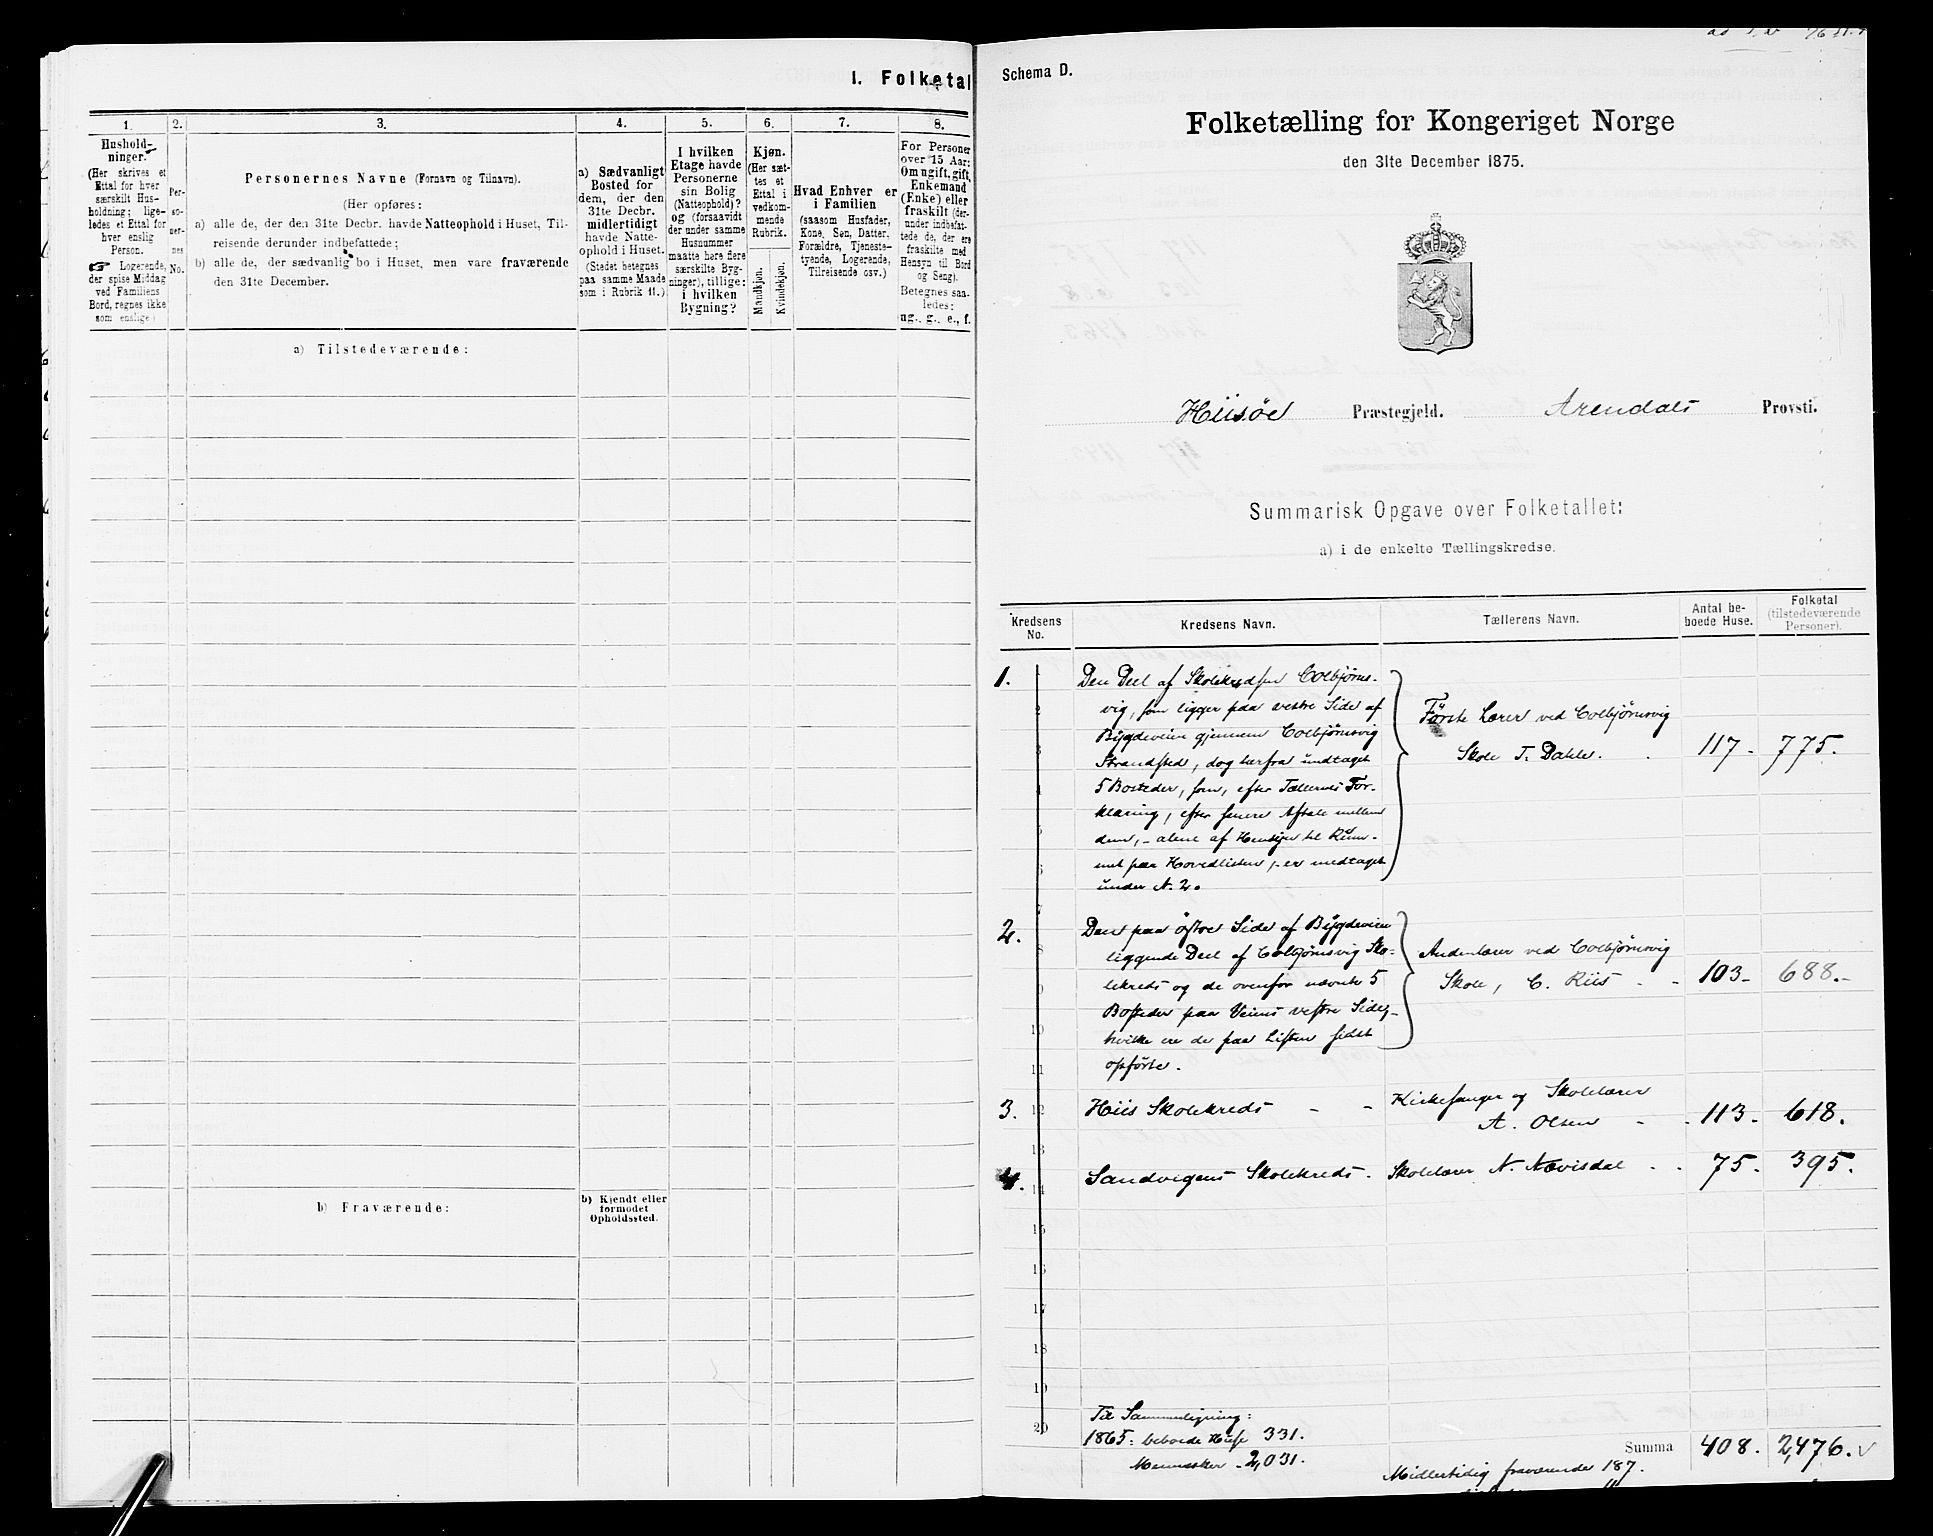 I. Folketal
1. 2. 3. 4. 5. 6. 7. 8.
Hushold-
ninger.
(Her skrives et
Ettal for hver
særskilt Hus-
holdning; lige-
ledes et Ettal for
hver enslig
Person.
☞ Logerende,
der spise Middag
ved Familiens
Bord, regnes ikke
som enslige)
Per-
so-
ner-
nes
No.
Personernes Navne (Fornavn og Tilnavn).
(Her opføres:
a) alle de, der den 31te Decbr. havde Natteophold i Huset, Til-
reisende derunder indbefattede;
b) alle de, der sædvanlig bo i Huset, men vare fraværende
den 31te December.
a) Sædvanligt
Bosted for
dem, der den
31te Decbr.
midlertidigt
havde Natte-
ophold i Huset.
(Stedet betegnes
paa samme Maade
som i Rubrik 11.)
I hvilken
Etage havde
Personerne
sin Bolig
(Natteophold)?
og (forsaavidt
der under samme
Husnummer
maatte høre flere
særskilte Byg-
ninger), tillige:
i hvilken
Bygning?
Kjøn.
(Her sæt-
tes et
Ettal i
vedkom-
mende
Rubrik.
Mandkjøn.
Kvindekjøn.
Hvad Enhver er
i Familien
(saasom Husfader,
Kone, Søn, Datter,
Forældre, Tjeneste-
tyende, Logerende,
Tilreisende osv.)
For Personer
over 15 Aar:
Om ugift, gift,
Enkemand
(Enke) eller
fraskilt (der-
under indbefat-
tede de, der ere
fraskilte med
Hensyn til Bord
og Seng).
Betegnes saa-
ledes:
ug., g., e., f.
a) Tilstedeværende:
b) Fraværende:
b) Kjendt eller
formodet
Opholdssted.
Schema D.
Folketælling for Kongeriget Norge
den 31te December 1875.
Hiisøe Præstegjeld. Arendals Provsti.
Summarisk Opgave over Folketallet:
a) i de enkelte Tællingskredse.
Kredsens
No.
Kredsens Navn.
Tællerens Navn.
Antal be-
boede Huse.
Folketal
(tilstedeværende
Personer).
1. Den Deel af Skolekredsen Colbjørns-
vig, som ligger paa vestre Side af
Bygdeveien gjennem Colbjørnsvig
Strandsted, dog herfra undtaget
5 Bosteder, som, efter Tællernes For-
klaring, efter senere Aftale mellem
dem, - alene af Hensyn til Rum-
met paa Hovedlisten, - er medtaget
under N. 2.
Første Lærer ved Colbjørnsvig
Skole T. Dahle. 117. 775.
2. Den paa østre Side af Bygdeveien
liggende Deel af Colbjørnsvig Sko-
lekreds og de ovenfor nævnte 5
Bosteder paa Veiens vestre Side,
hvilke ere de paa Listen sidst
opførte.
Andenlærer ved Colbjørnsvig
Skole, C. Riis 103 - 688. -
3. Hiis Skolekreds - - Kirkesanger og Skolelærer
A. Olsen - 113. 618.
4. Sandvigens Skolekreds. Skolelærer N. Nævisdal . . 75. 395.
1
2
3
4
5
6
7
8
9
10
11
12
13
14
15
16
17
18
19
20
Til Sammenligning:
1865: beboede Huse 331.
Mennesker - 2,031.
Summa 408. 2,476. ✓
Midlertidig fraværende 187.